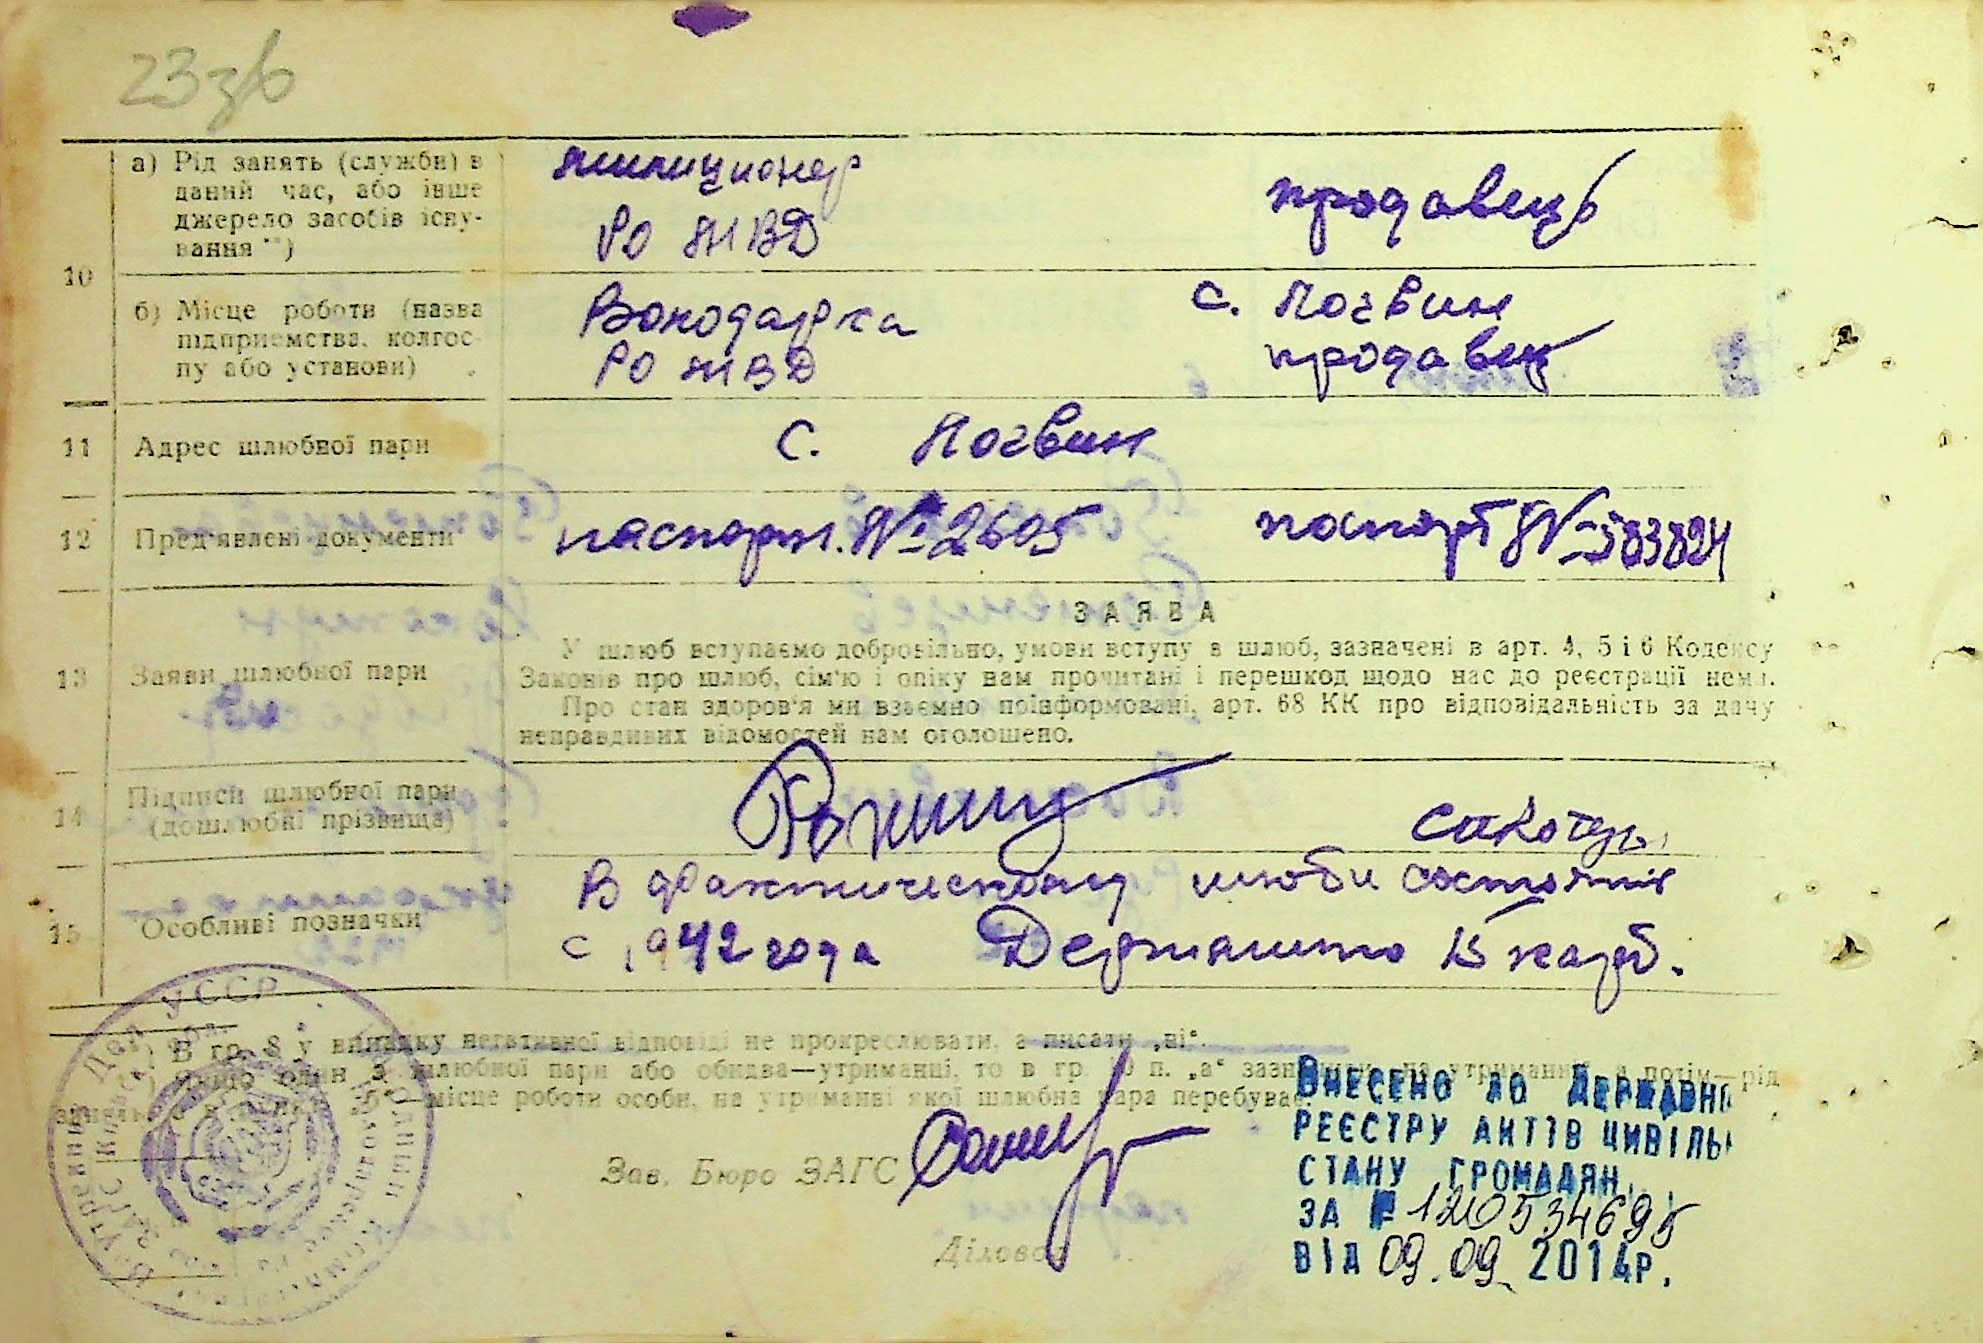 23зв
10
а) Рід занять (служби) в
даний час, або інше
джерело засобів існу-
вання **)
милиционер
РО МВД
продавець
б) Місце роботи (назва
підприємства, колгос-
пу або установи)
Володарка
РО МВД
с. Логвин
продавец
11
Адрес шлюбної пари
с. Логвин
12
Пред'явлені документи
паспорт. № 2605
паспорт № 583824
13
Заяви шлюбної пари
ЗАЯВА
У шлюб вступаємо добровільно, умови вступу в шлюб, зазначені в арт. 4, 5 і 6 Кодексу
Законів про шлюб, сім'ю і опіку нам прочитані і перешкод щодо нас до реєстрації нема.
Про стан здоров'я ми взаємно поінформовані, арт. 68 КК про відповідальність за дачу
неправдивих відомостей нам оголошено.
14
Підписи шлюбної пари
(дошлюбні прізвища)
15
Особливі позначки
В фактическому шлюби состояли
с 1942 года Держмито 15 карб.
В гр. 8 у випадку негативної відповіді не прокреслювати, а писати „ні“.
Якщо один з шлюбної пари або обидва—утриманці, то в гр. 10 п. „а“ на утриманні, а потім—рід
місце роботи особи, на утриманні якої шлюбна пара перебуває.
УССР
Зав. Бюро ЗАГС
Діловод
Внесено до Державн
реєстру актів цивіль
стану громадян
за № 120534695
від 09.09 2014р.